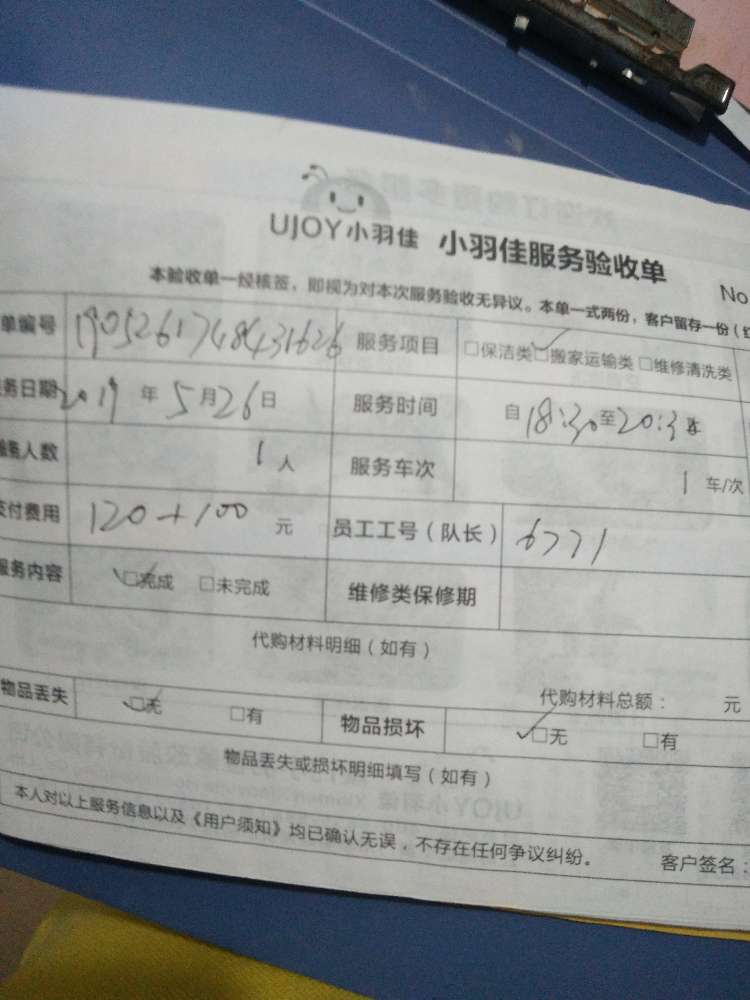 UJOY小羽佳 小羽佳服务验收单
No
本验收单一经核签，即视为对本次服务验收无异议。本单一式两份，客户留存一份（红
单编号 1905261748431626 服务项目 □保洁类 □搬家运输类 □维修清洗类
务日期 2019年5月26日 服务时间 自18:30至20:3
服务人数 1人 服务车次 1车/次
支付费用 120+100元 员工工号（队长） 6771
服务内容 □完成 □未完成 维修类保修期
代购材料明细（如有）
代购材料总额： 元
物品丢失 □无 □有 物品损坏 □无 □有
物品丢失或损坏明细填写（如有）
本人对以上服务信息以及《用户须知》均已确认无误，不存在任何争议纠纷。 客户签名：